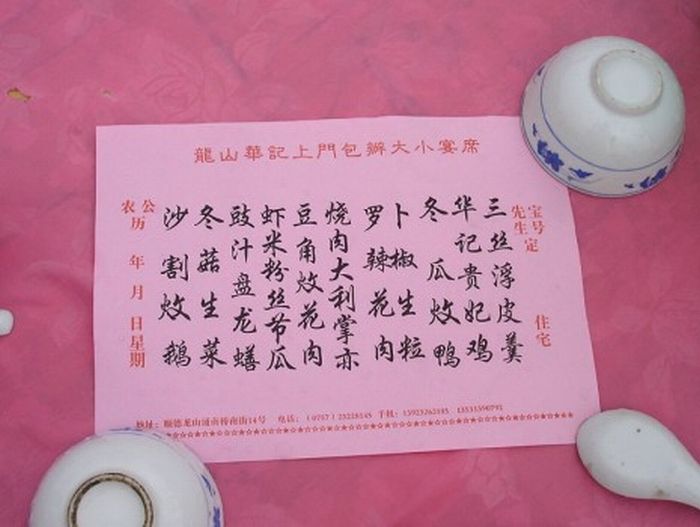 龍山華記上門包辦大小宴席
宝号
先生 定 住宅
三丝浮皮羹
华记贵妃鸡
冬瓜炆鸭
罗卜辣椒花生肉粒
烧肉大利掌亦
豆角炆花肉
虾米粉丝节瓜
豉汁盘龙鳝
冬菇生菜
沙割炆鹅
公
农 历 年 月 日星期
地址：顺德龙山 南街14号 电话：（0757） 手机：